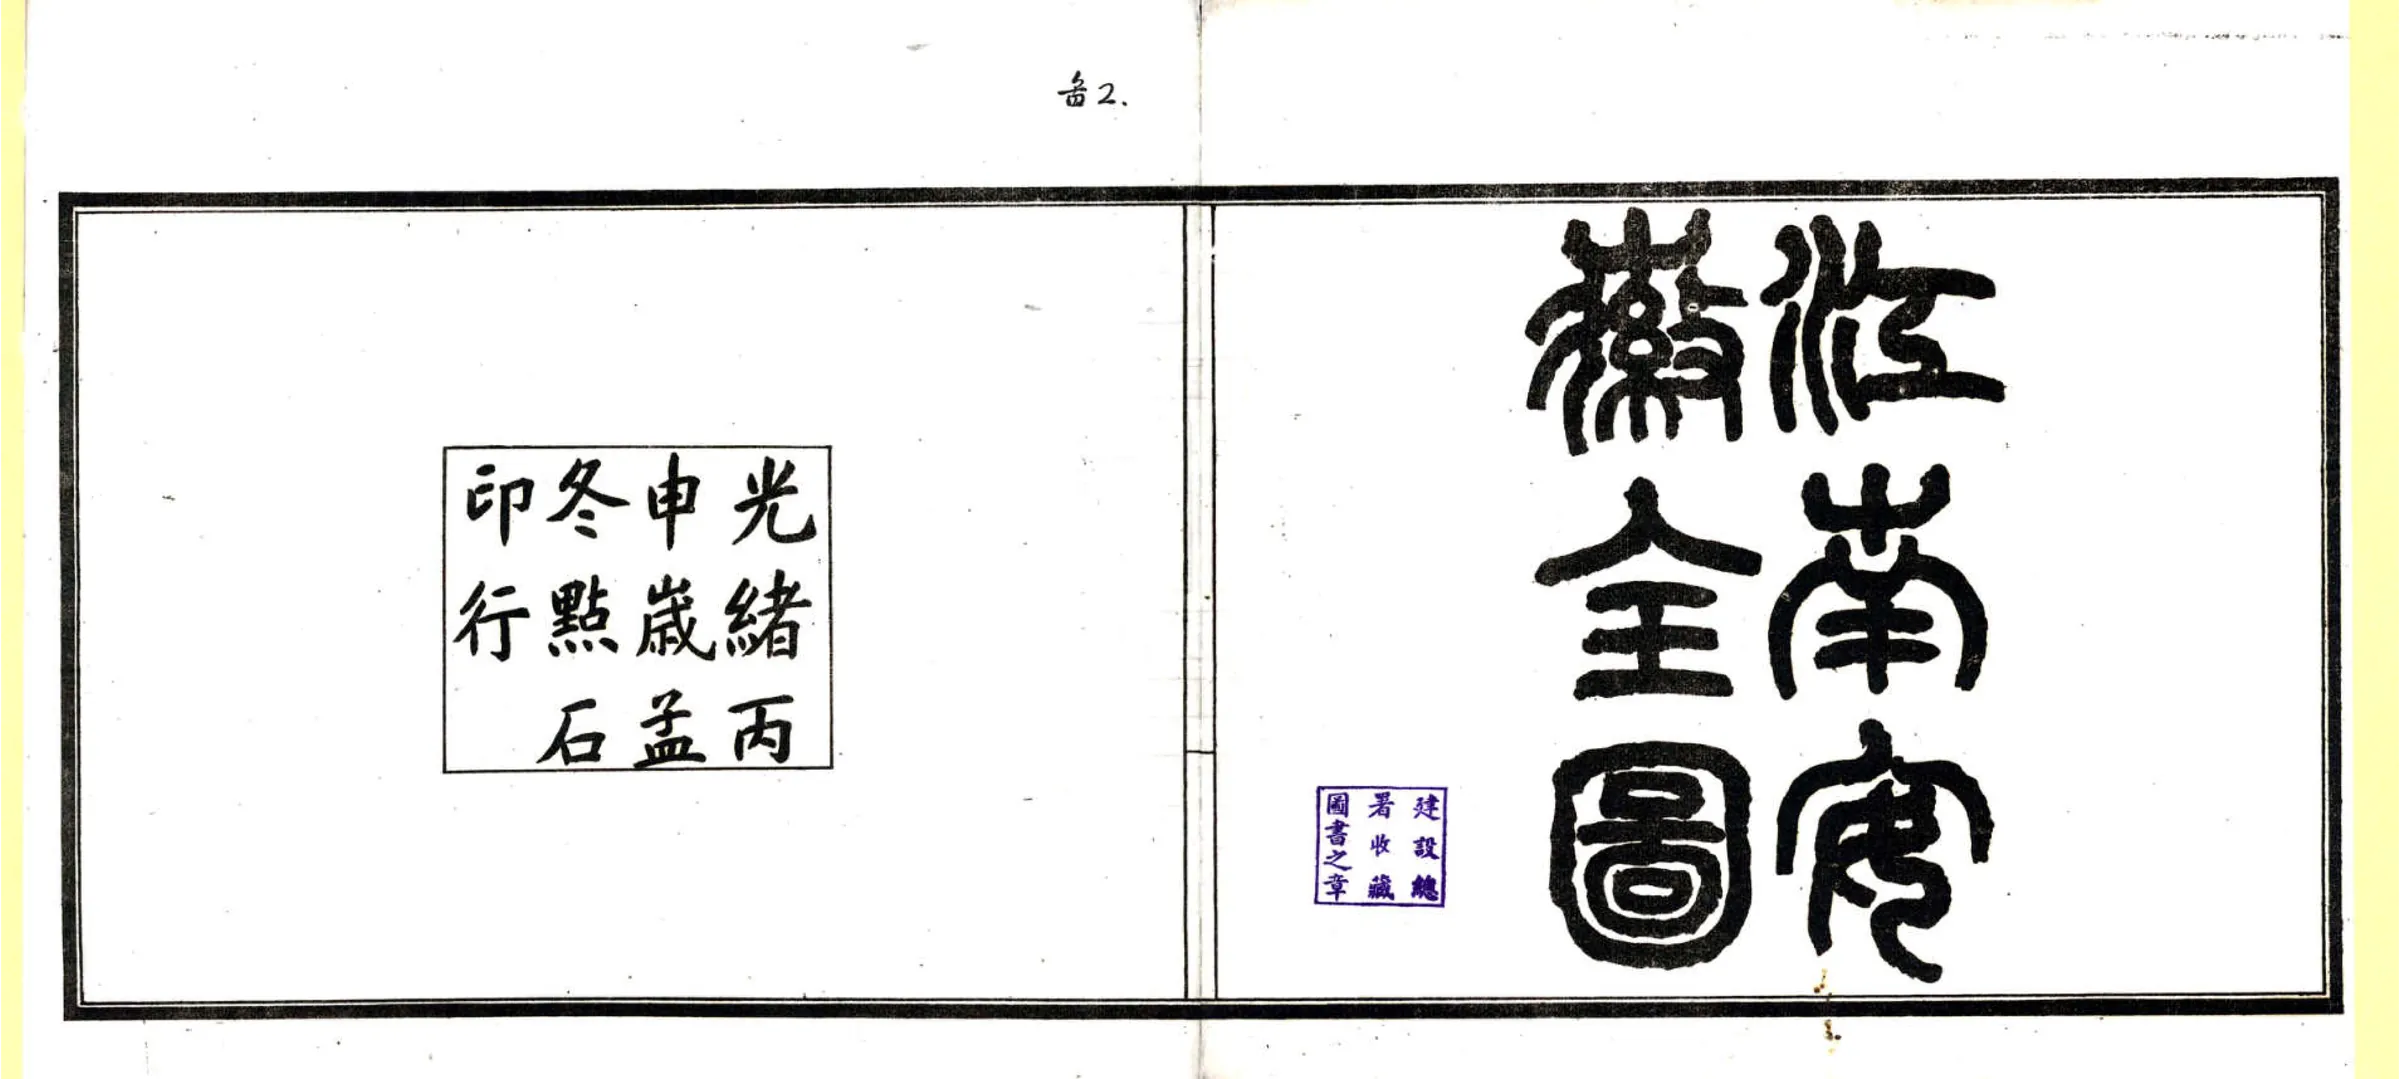 江南安
徽全圖
建設總
署收藏
圖書之章
光緒丙
申歲孟
冬點石
印行